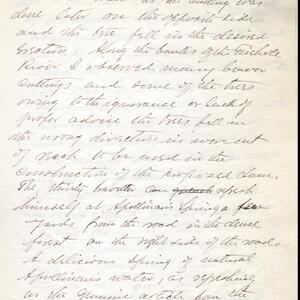 done later on the opposite side
and the tree fell in the desired
direction. Along the banks of the
River I observed many beaver
cuttings and some of the trees
owing to the ignorance or lack of
proper advise the trees fell in
the wrong direction &
of reach to be used in the
construction of the proposed dam.
The thirsty traveler can quench refresh
himself at Apollinaris Spring a few
yards from the road in the dense
forest on the right side of the road.
A delicious Spring of natural
Apollinaris water, as refreshing
as the genuine article from the